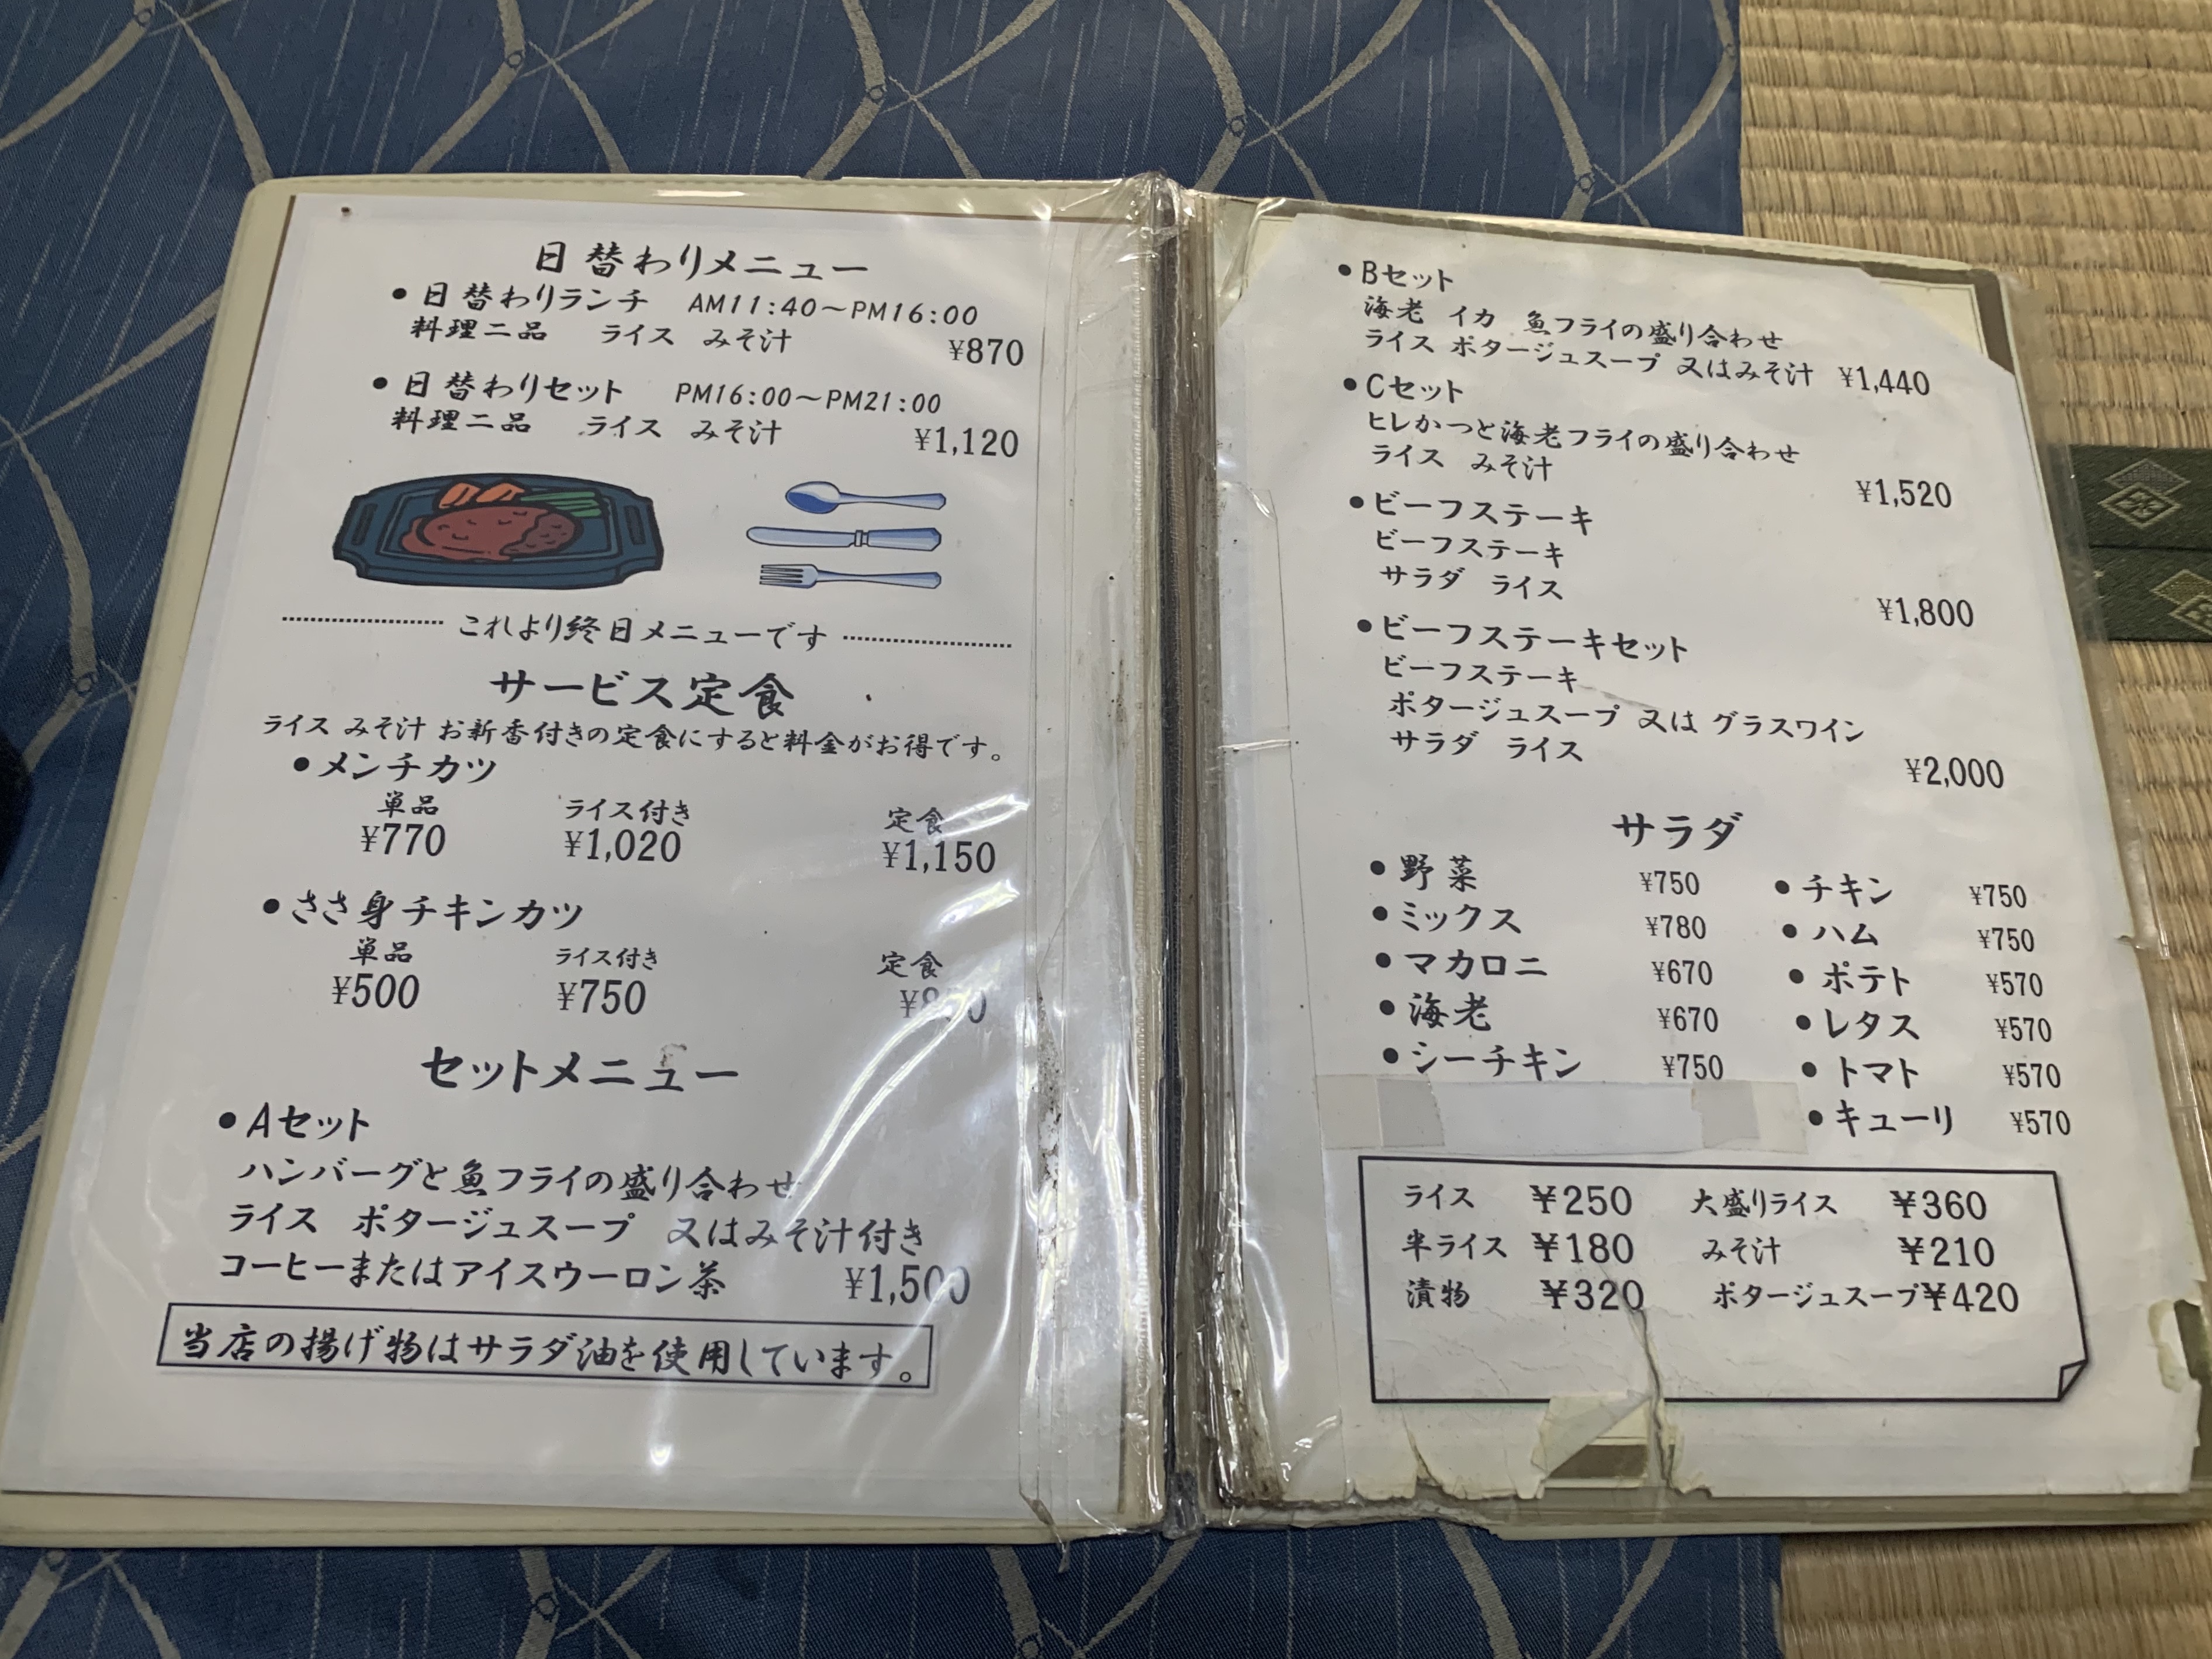 日替わりメニュー
●日替わりランチ AM11:40～PM16:00
料理二品 ライス みそ汁 ¥870
●日替わりセット PM16:00～PM21:00
料理二品 ライス みそ汁 ¥1,120
これより終日メニューです
サービス定食
ライス みそ汁 お新香付きの定食にすると料金がお得です。
●メンチカツ
単品 ライス付き 定食
¥770 ¥1,020 ¥1,150
●ささ身チキンカツ
単品 ライス付き 定食
¥500 ¥750
セットメニュー
●Aセット
ハンバーグと魚フライの盛り合わせ
ライス ポタージュスープ 又はみそ汁付き
コーヒーまたはアイスウーロン茶 ¥1,500
当店の揚げ物はサラダ油を使用しています。
●Bセット
海老 イカ 魚フライの盛り合わせ
ライス ポタージュスープ 又はみそ汁 ¥1,440
●Cセット
ヒレかつと海老フライの盛り合わせ
ライス みそ汁
¥1,520
●ビーフステーキ
ビーフステーキ
サラダ ライス
¥1,800
●ビーフステーキセット
ビーフステーキ
ポタージュスープ 又は グラスワイン
サラダ ライス
¥2,000
サラダ
●野菜 ¥750 ●チキン ¥750
●ミックス ¥780 ●ハム ¥750
●マカロニ ¥670 ●ポテト ¥570
●海老 ¥670 ●レタス ¥570
●シーチキン ¥750 ●トマト ¥570
●キューリ ¥570
ライス ¥250 大盛りライス ¥360
半ライス ¥180 みそ汁 ¥210
漬物 ¥320 ポタージュスープ¥420